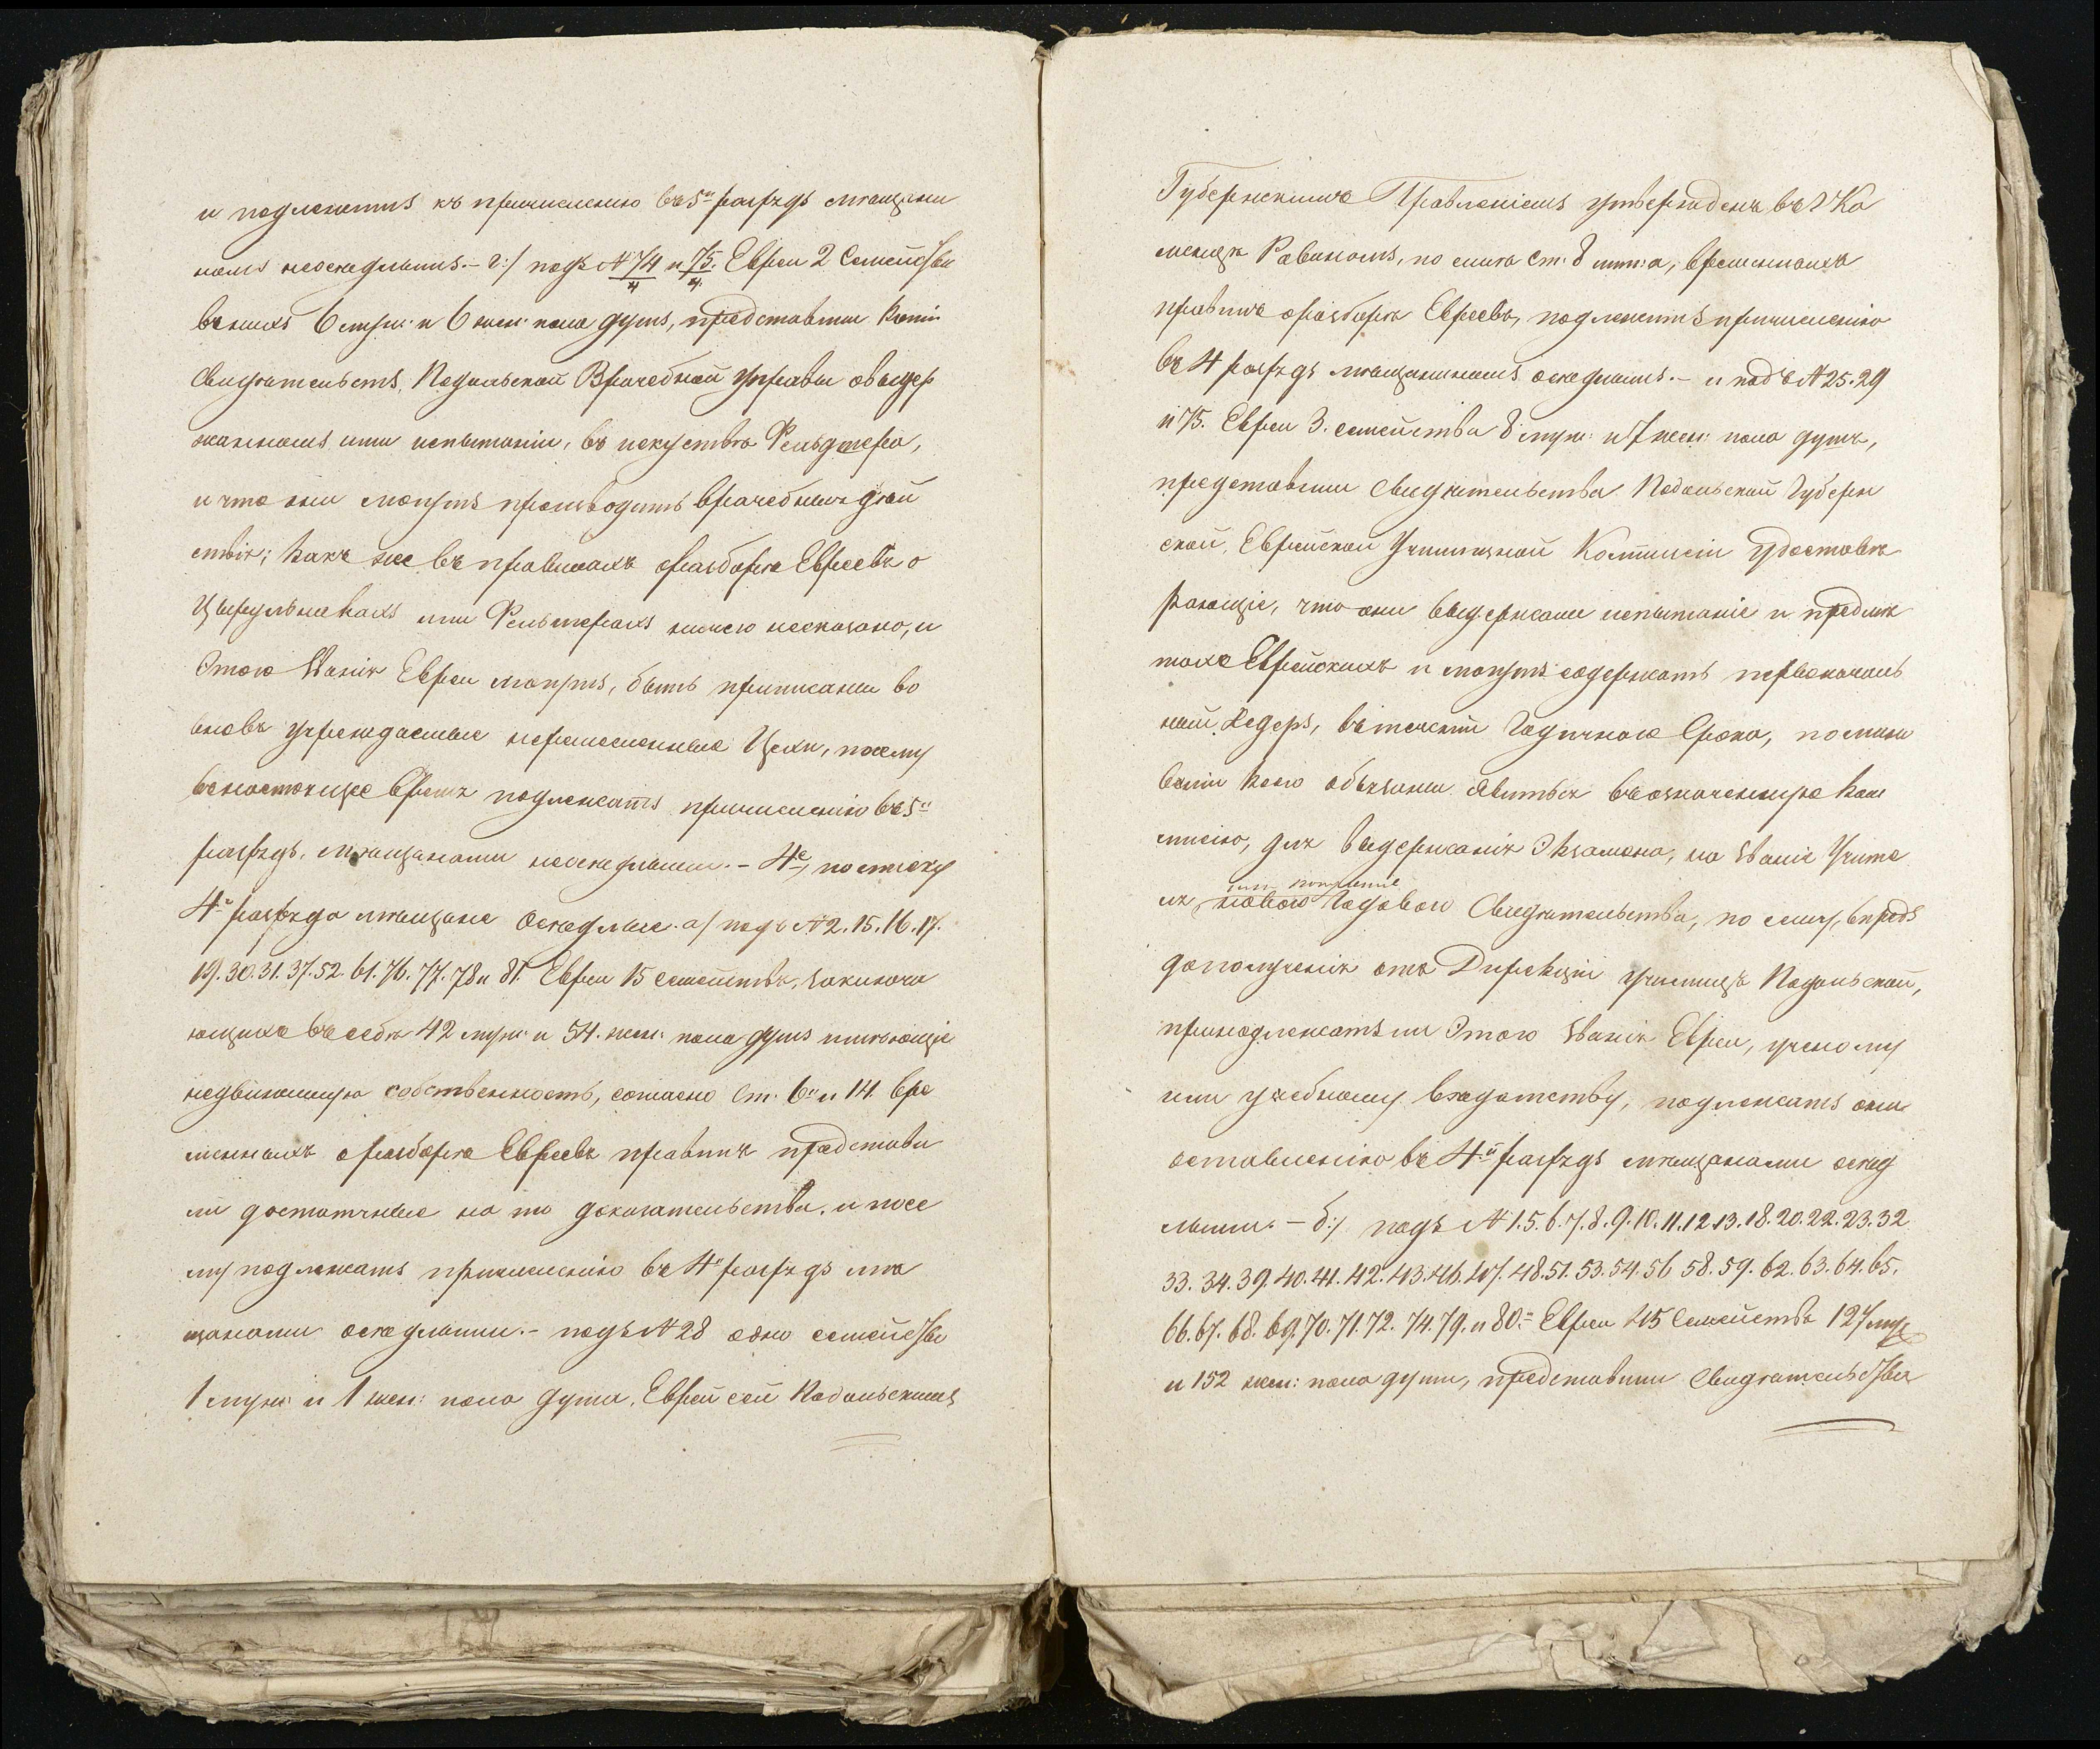 и подлежатъ къ причисленію въ 5й разрядъ мѣщани
номъ неосѣдлымъ. – г:/ подъ № 74/4 и 75/4. Евреи 2 Семейства
въ нихъ 6 муж: и 6 жен: пола душъ, представили Копіи
Свидѣтельствъ, Подольской Врачебной Управы о выдер
жанномъ ими испытаніи, въ искуствѣ Фельдшера,
и что они могутъ производить врачебныя дѣй
ствія; какъ же въ правилахъ о разборѣ Евреевъ о
Цырульникахъ или Фельшерахъ ничего несказано, и
Этого Званія Евреи могутъ, быть приписаны во
вновь учреждаемые неремесленные Цехи, посему
въ настоящее Время подлежатъ причисленію въ 5й
разрядъ, мѣщанами неосѣдлыми. – 4е, по списку
4го разряда мѣщане Осѣдлые. а/ подъ № 2. 15. 16. 17.
19. 30. 31. 37. 52. 61. 76. 77. 78 и 81. Евреи 15 семействъ, заключа
ющихъ въ себѣ 42 муж: и 54. жен: пола душъ имѣющіе
недвижимую собственность, согласно Ст. 6й и 14 вре
менныхъ о разборѣ Евреевъ правилъ представи
ли достаточные на то доказательства. и посе
му подлежатъ причисленію въ 4й разрядъ мѣ
щанами осѣдлыми. – подъ № 28 одно семейство
1 муж: и 1 жен: пола душа, Еврей сей Подольскимъ
Губернскимъ Правленіемъ утвержденъ въ Ка
менцѣ Равиномъ, по силѣ ст: 8 лит: а, временныхъ
правилъ о разборѣ Евреевъ, подлежитъ причисленію
въ 4 разрядъ мѣщаниномъ осѣдлымъ. – и подъ № 25. 29
и 75. Евреи 3. семейства 8 муж: и 7 жен: пола душъ,
представили Свидѣтельства Подольской Губерн
ской, Еврейской Училищной Коммисіи Удостовѣ
ряющіе, что они выдержали испытаніе и предмѣ
тахъ Еврейскихъ и могутъ содержать первоначаль
ный Хедеръ, въ теченіи Годичнаго Срока, по мино
ваніи коего обязаны Явиться въ означенную Ком
мисію, для выдержанія Экзамена, на Званіе Учите
ля или полученіе
новаго Годоваго Свидѣтельства, по сему, впредь
до полученія отъ Дирекціи училищъ Подольской,
принадлежатъ ли Этого Званія Евреи, ученому
или учебному вѣдомству, подлежатъ они
оставленію въ 4й разрядѣ мѣщанами осѣд
лыми. – б:/ подъ № 1. 5. 6. 7. 8. 9. 10. 11. 12. 13. 18. 20. 22. 23. 32
33. 34. 39. 40. 41. 42. 43. 46. 47. 48. 51. 53. 54. 56 58. 59. 62. 63. 64. 65.
66. 67. 68. 69. 70. 71. 72. 74. 79. и 80.= Евреи 45 Семействъ 127 муж
и 152 жен: пола души, представили Свидѣтельства